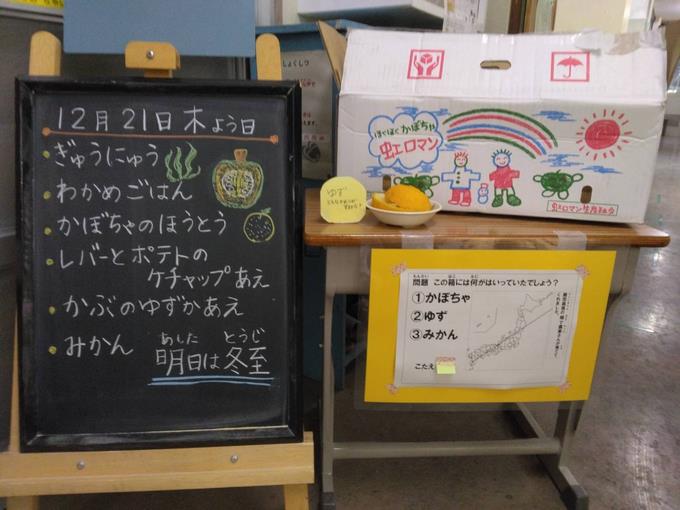 12月21日木よう日
ぎゅうにゅう
わかめごはん
かぼちゃのほうとう
レバーとポテトの
ケチャップあえ
かぶのゆずかあえ
みかん
あした とうじ
明日は冬至
ほくほくかぼちゃ
虹ロマン
虹ロマン生産組合
ゆず
もんだい はこ なに
問題 この箱には何がはいっていたでしょう？
①かぼちゃ
②ゆず
③みかん
こたえ